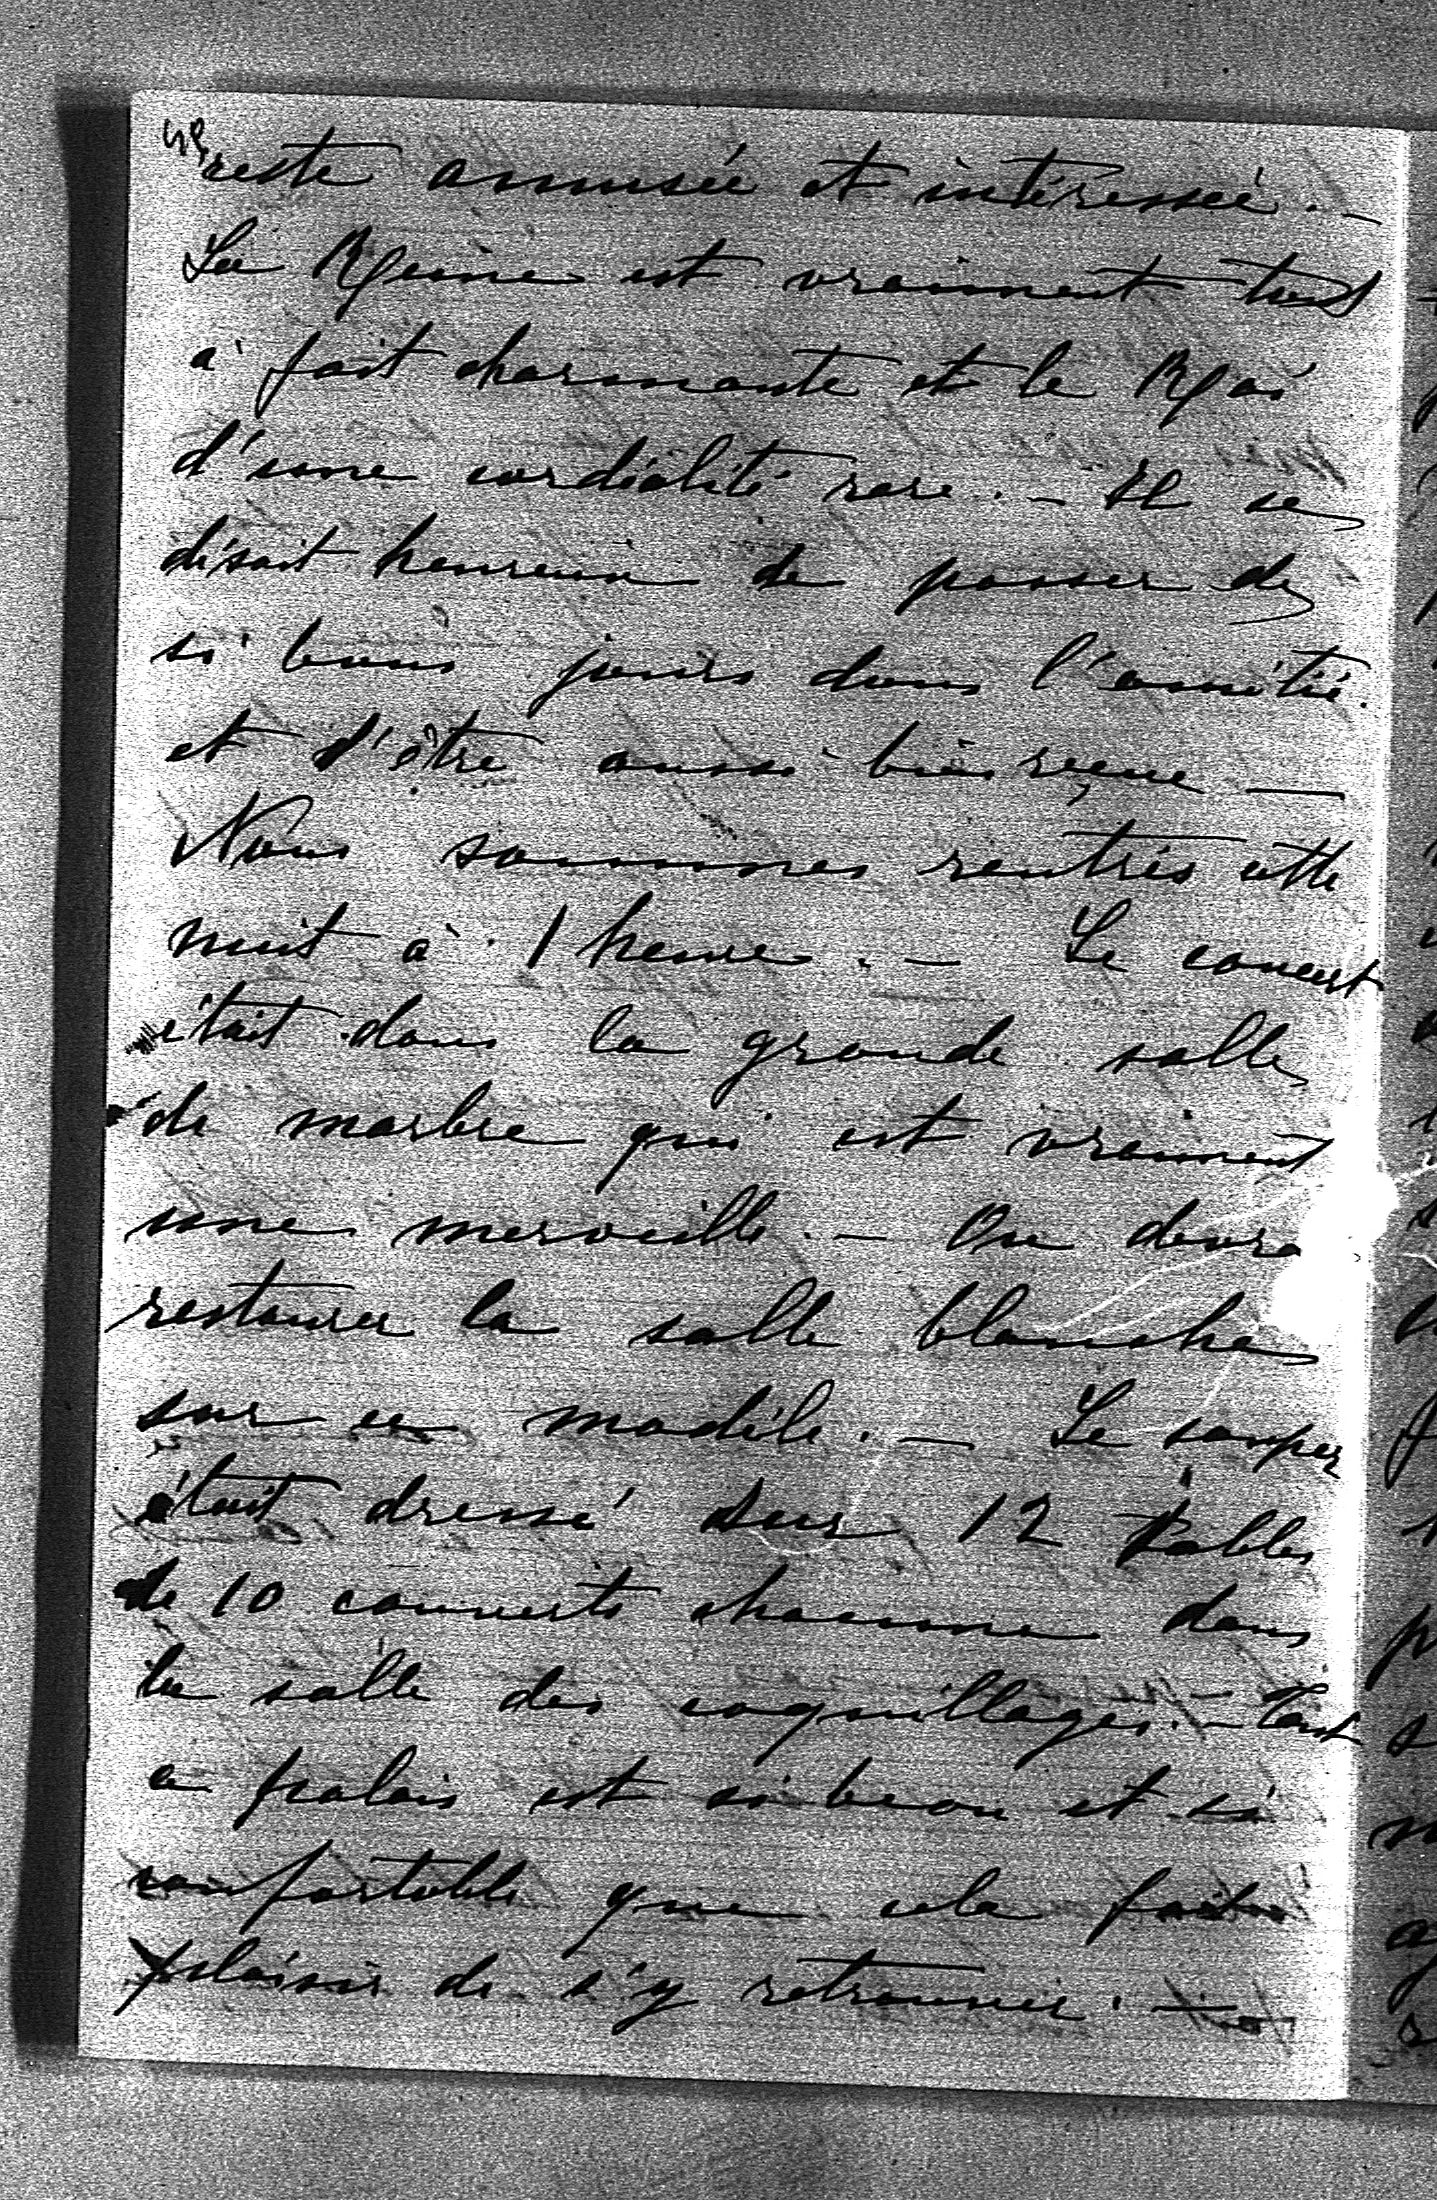 reste amusée et intéressée. —
La Reine est vraiment tout
à fait charmante et le Roi
d'une cordialité rare. — Il se
disait heureux de passer de
si bons jours dans l'amitié.
et d'être aussi bien reçue —
Nous sommes rentrés cette
nuit à 1 heure. — Le concert
était dans la grande salle
de marbre qui est vraiment
une merveille. — On devra
restaurer la salle blanche
sur ce modèle. — Le souper
était dressé sur 12 tables
de 10 couverts chacune dans
la salle des coquillages. — Tout
ce palais est si beau et si
confortable que cela fait
plaisir de s'y retrouver. —